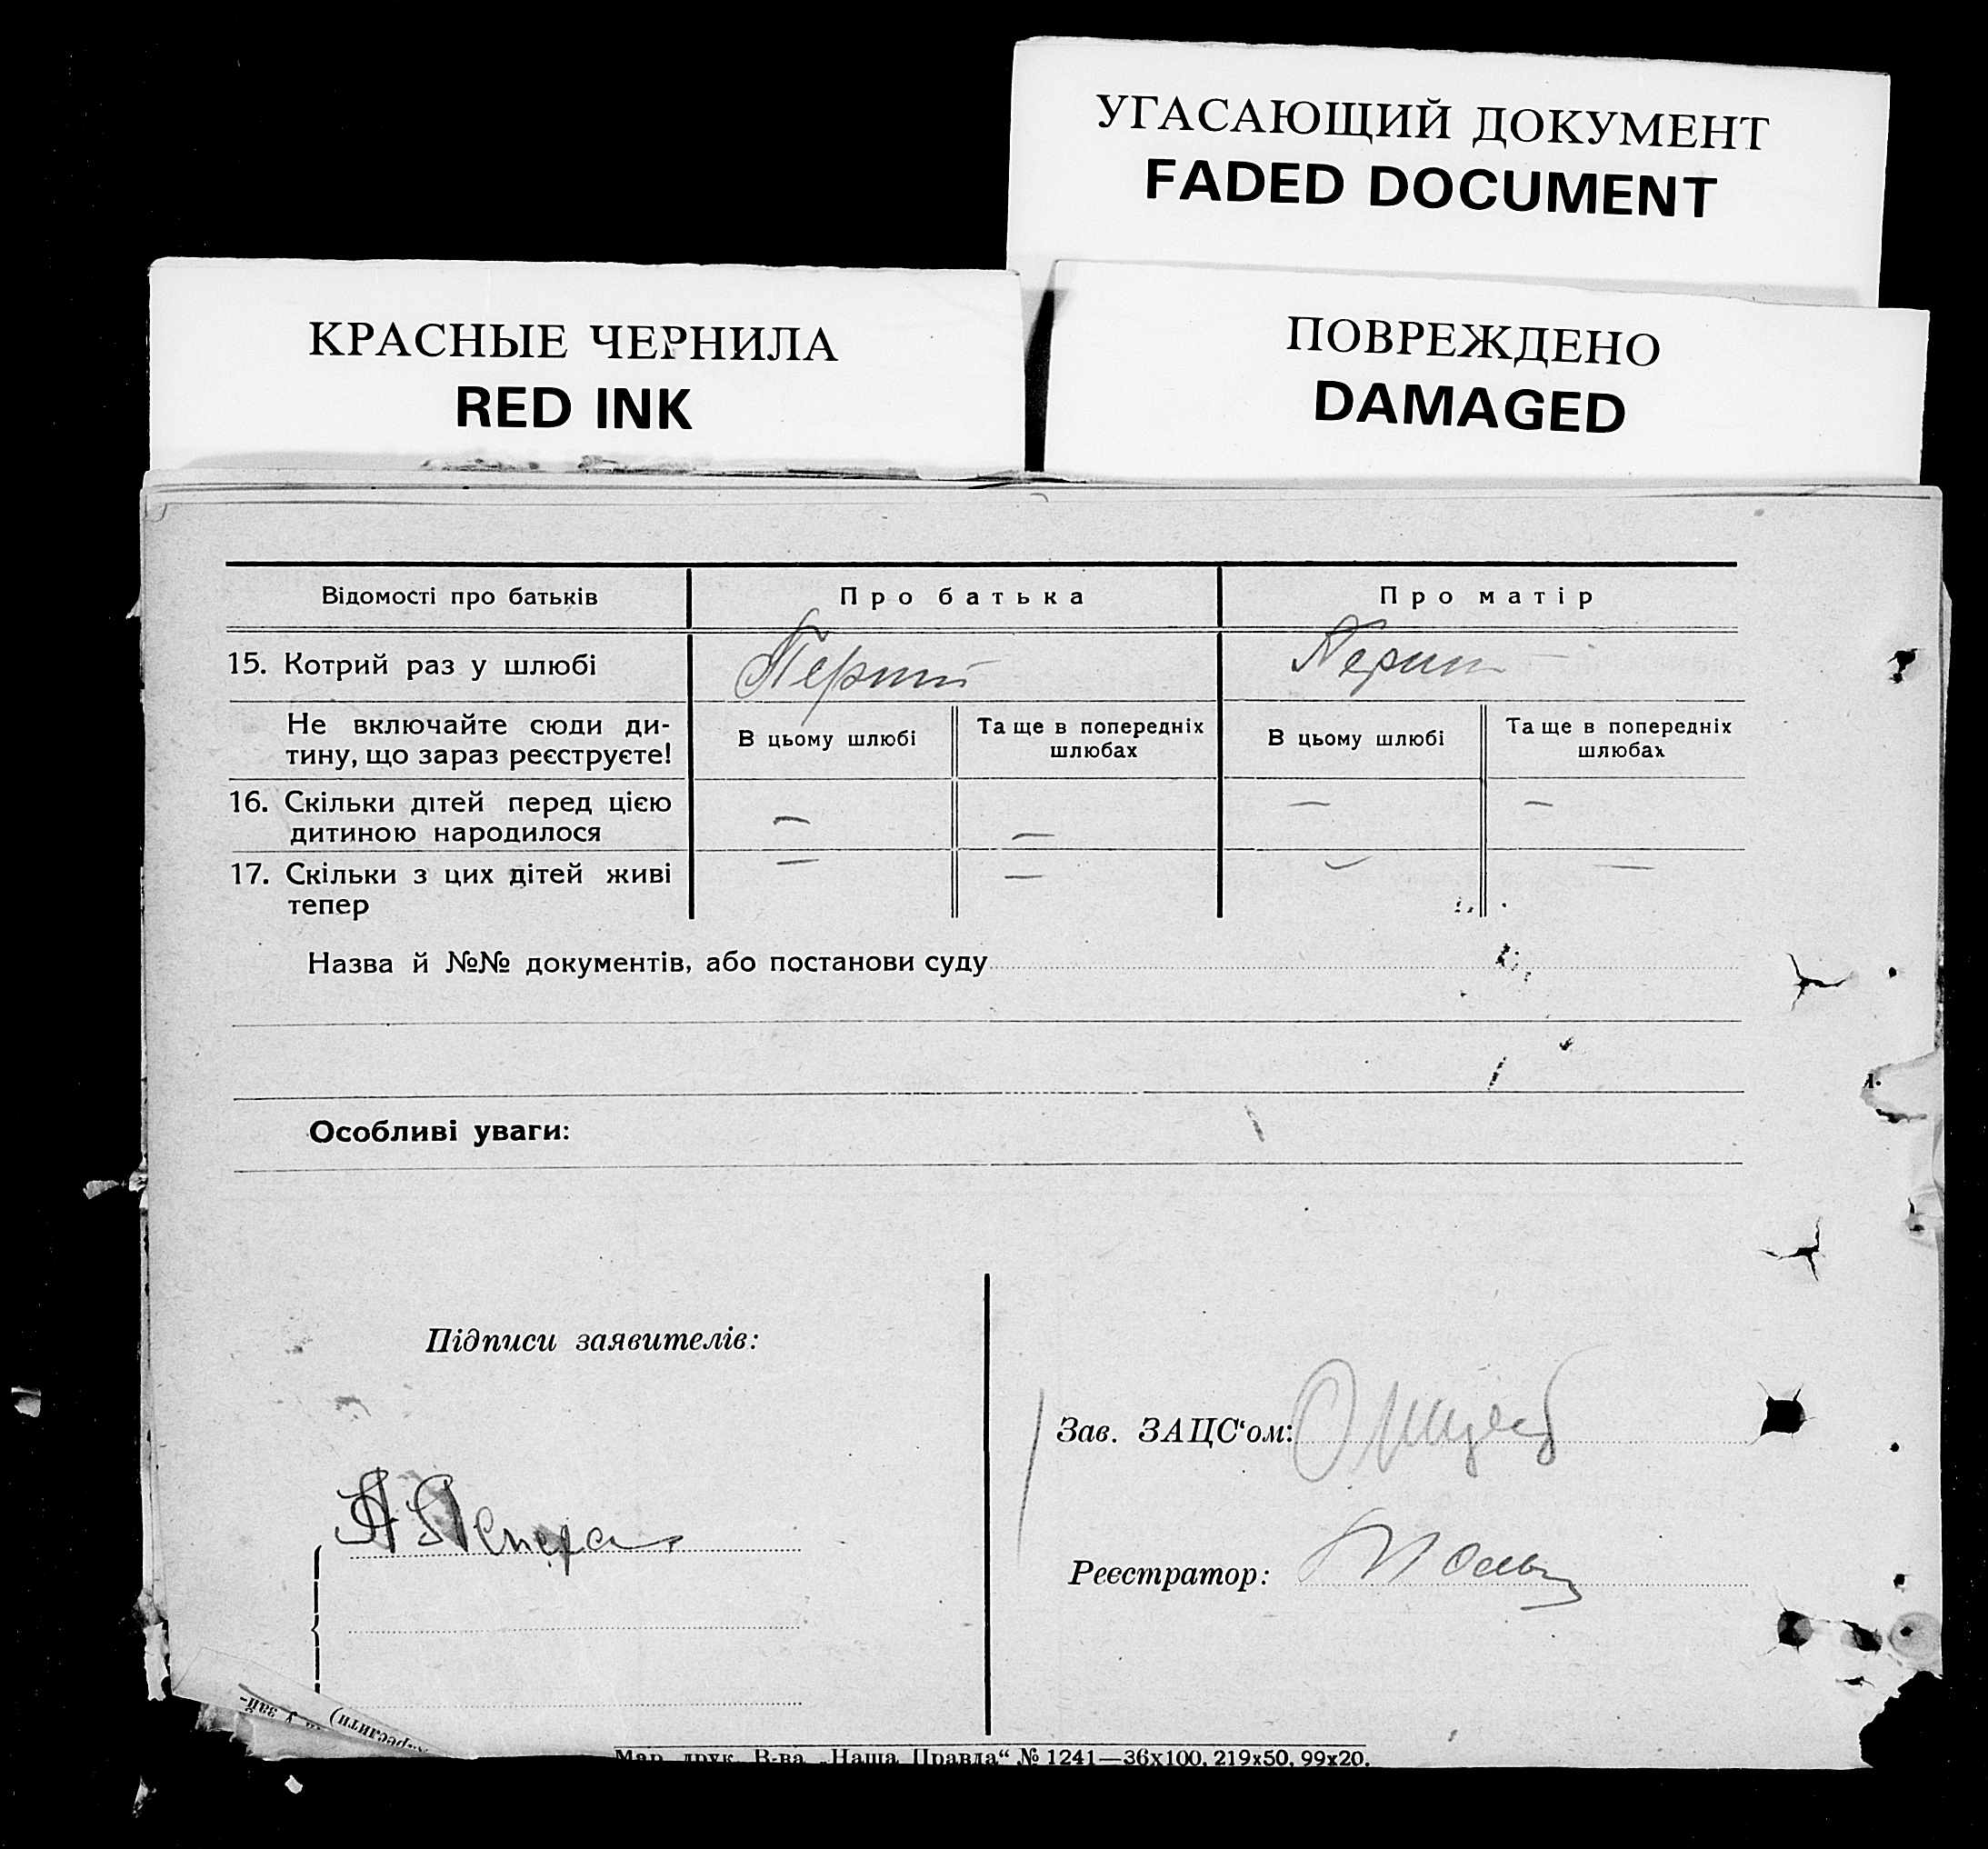 УГАСАЮЩИЙ ДОКУМЕНТ
FADED DOCUMENT
КРАСНЫЕ ЧЕРНИЛА
RED INK
ПОВРЕЖДЕНО
DAMAGED
Відомості про батьків
Про батька
Про матір
15. Котрий раз у шлюбі
Перший
Перший
Не включайте сюди ди-
тину, що зараз реєструєте!
В цьому шлюбі
Та ще в попередніх
шлюбах
В цьому шлюбі
Та ще в попередніх
шлюбах
16. Скільки дітей перед цією
дитиною народилося
— — — —
17. Скільки з цих дітей живі
тепер
— — — —
Назва й №№ документів, або постанови суду
Особливі уваги:
Підписи заявителів:
Зав. ЗАЦС‘ом:
Реєстратор:
Мар. друк. В-ва „Наша Правда“ № 1241—36х100, 219х50, 99х20.